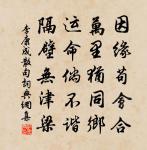 因緣苟會合
萬里猶同鄉
運命儻不諧
隔壁無津梁
李康成散句詞典網集